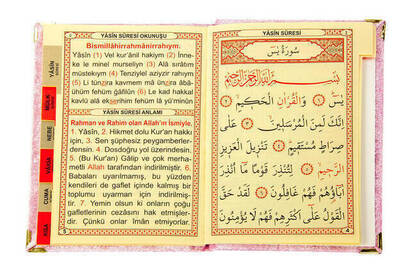 YÂSÎN SÛRESİ OKUNUŞU
Bismillâhirrahmânirrahıym.
Yâsîn (1) Vel kur'ânil hakiym (2) İnne-
ke le minel murseliyn (3) Alâ sırâtım
müstekıym (4) Tenziylel aziyzir rahıym
(5) Li tünzira kavmem mâ ünzira âbâ-
ühüm fehüm ğafilûn (6) Le kad hakkal
kavlü alâ ekserihim fehüm lâ yü'minûn
YÂSÎN SÛRESİ ANLAMI
Rahman ve Rahim olan Allah'ın İsmiyle.
1. Yâsîn, 2. Hikmet dolu Kur'an hakkı
için, 3. Sen şüphesiz peygamberler-
densin. 4. Dosdoğru yol üzerindesin.
5. (Bu Kur'an) Gâlip ve çok merha-
metli Allah tarafından indirilmiştir. 6.
Babaları uyarılmamış, bu yüzden
kendileri de gaflet içinde kalmış bir
toplumu uyarman için indirilmiş-
tir. 7. Yemin olsun ki onların çoğu
gafletlerinin cezâsını hak etmişler-
dir. Çünkü onlar îman etmiyorlar.
YÂSÎN
MÜLK
NEBE
VÂKIA
CUMA
YÂSÎN SÛRESİ
سُورَةُ يٰسٓ
بِسْمِ اللهِ الرَّحْمٰنِ الرَّحِيمِ
يٰسٓ ﴿١﴾ وَالْقُرْاٰنِ الْحَكِيمِ ﴿٢﴾
اِنَّكَ لَمِنَ الْمُرْسَلِينَ ﴿٣﴾ عَلٰى
صِرَاطٍ مُسْتَقِيمٍ ﴿٤﴾ تَنْزِيلَ الْعَزِيزِ
الرَّحِيمِ ﴿٥﴾ لِتُنْذِرَ قَوْمًا مَٓا اُنْذِرَ
اٰبَٓاؤُهُمْ فَهُمْ غَافِلُونَ ﴿٦﴾ لَقَدْ حَقَّ
الْقَوْلُ عَلٰٓى اَكْثَرِهِمْ فَهُمْ لَا يُؤْمِنُونَ